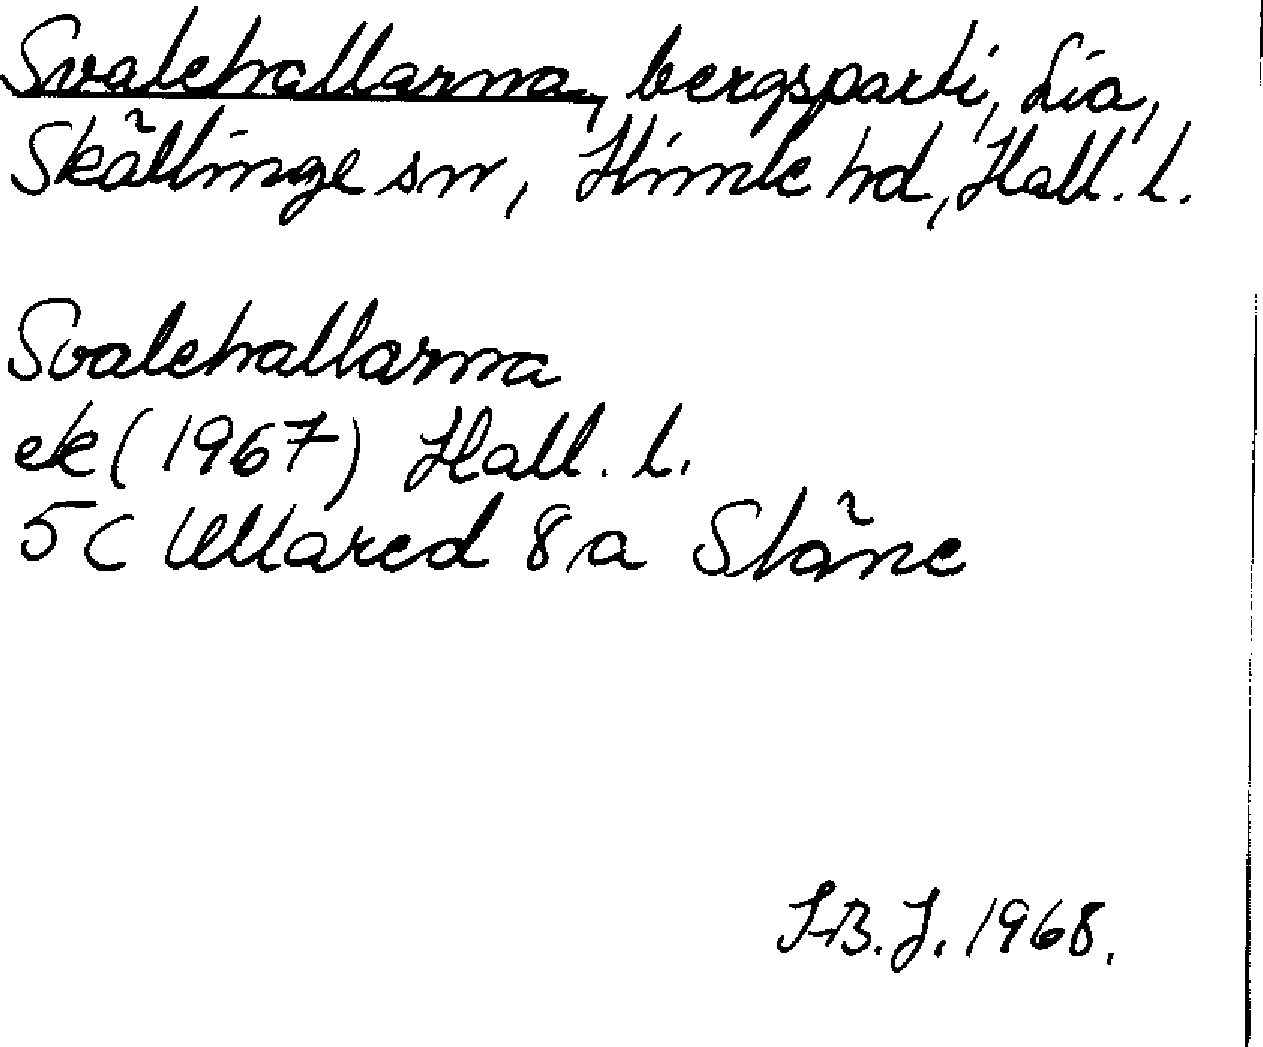 Svalehallarna, bergsparti, Lia,
Skällinge sn, Himle hd, Hall. l.
Svalehallarna
ek (1967) Hall. l.
5C Ullared 8 a Släne
1968.